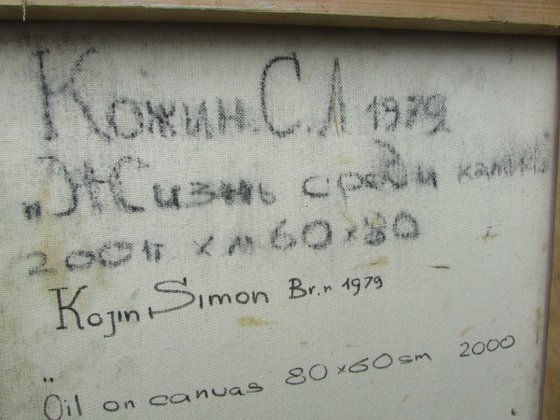 Кожин С.Л 1979
„Жизнь среди камней
200п х м 60х80
Kojin Simon Br.n 1979
„
Oil on canvas 80x60sm 2000